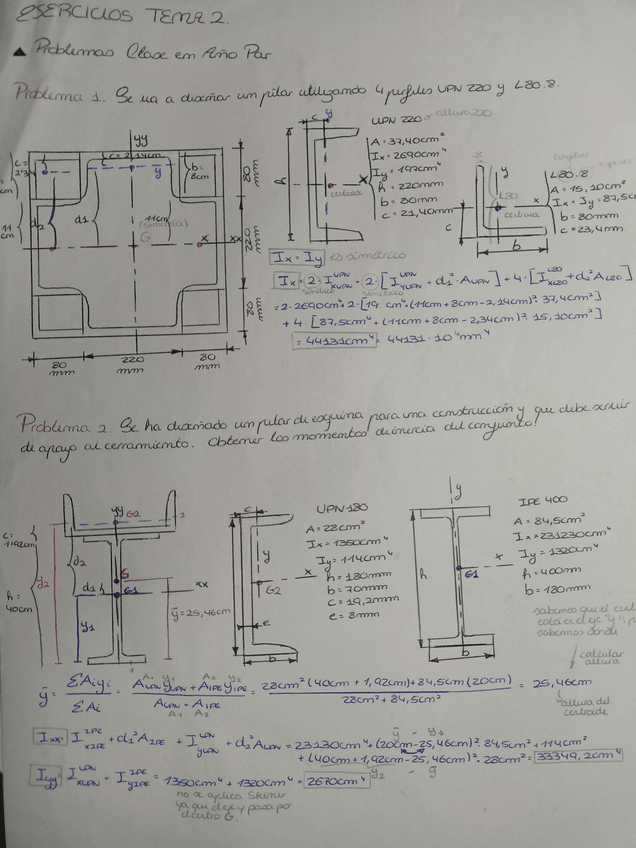 EJERCICIOS TEMA 2.
▲ Problemas Clase en Año Par
Problema 1. Se va a diseñar un pilar utilizando 4 perfiles UPN 220 y L80.8.
yy
c = 2'14cm
y
b = 8cm
11 cm
d2
d1
11cm
G
x
xx
80 mm
220 mm
80 mm
80 mm
220 mm
80 mm
c
y
h
x
UPN 220 altura 220
A = 37,40cm²
Ix = 2690cm⁴
Iy = 197cm⁴
h = 220mm
b = 80mm
c = 21,40mm
8
y
L80
x
c
b
L80.8
A = 15,10cm²
Ix = Iy = 87,5cm⁴
b = 80mm
c = 23,4mm
Ix = Iy es simétrico
Ix = 2·I UPN xUPN + 2·[I UPN yUPN + d1²·A UPN] + 4·[I L80 xL80 + d2² A L80]
= 2·2690cm⁴ + 2·[19 cm⁴ + (11cm + 8cm - 2,14cm)²· 37,4cm²]
+ 4·[87,5cm⁴ + (11cm + 8cm - 2,34cm)²· 15,10cm²]
= 44131cm⁴ = 44131·10⁴mm⁴
Problema 2. Se ha diseñado un pilar de esquina para una construcción y que debe servir
de apoyo al cerramiento. Obtener los momentos de inercia del conjunto.
c = 1,92cm
h = 40cm
yy G2
2
y2
d2
G
d1
G1
xx
y1
ȳ = 25,46cm
1
c
y
x
G2
e
b
h
UPN-180
A = 28cm²
Ix = 1350cm⁴
Iy = 114cm⁴
h = 180mm
b = 70mm
c = 19,2mm
e = 8mm
y
h
x
G1
b
IPE 400
A = 84,5cm²
Ix = 231230cm⁴
Iy = 1320cm⁴
h = 400mm
b = 180mm
sabemos que el
está en el eje "y",
sabemos donde
calcular altura
ȳ = ΣAiyi / ΣAi = A UPN y UPN + A IPE y IPE / A UPN + A IPE = 28cm²(40cm + 1,92cm) + 84,5cm(20cm) / 28cm² + 84,5cm² = 25,46cm
altura del centroide
Ixx = I IPE xIPE + d1² A IPE + I UPN yUPN + d2² A UPN = 23130cm⁴ + (20cm - 25,46cm)²· 84,5cm² + 114cm⁴
+ (40cm + 1,92cm - 25,46cm)²· 28cm² = 33349,2cm⁴
Iyy = I UPN xUPN + I IPE yIPE = 1350cm⁴ + 1320cm⁴ = 2670cm⁴
no se aplica Steiner
ya que el eje y pasa por
el centro G.